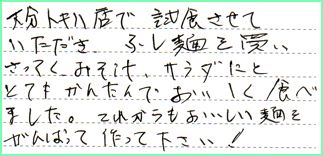 大分トキハ店で 試食させて
いただき ふし麺を買い
さっそく みそ汁、サラダにと
とてもかんたんで おいしく食べ
ました。これからもおいしい麺を
がんばって作って下さい!